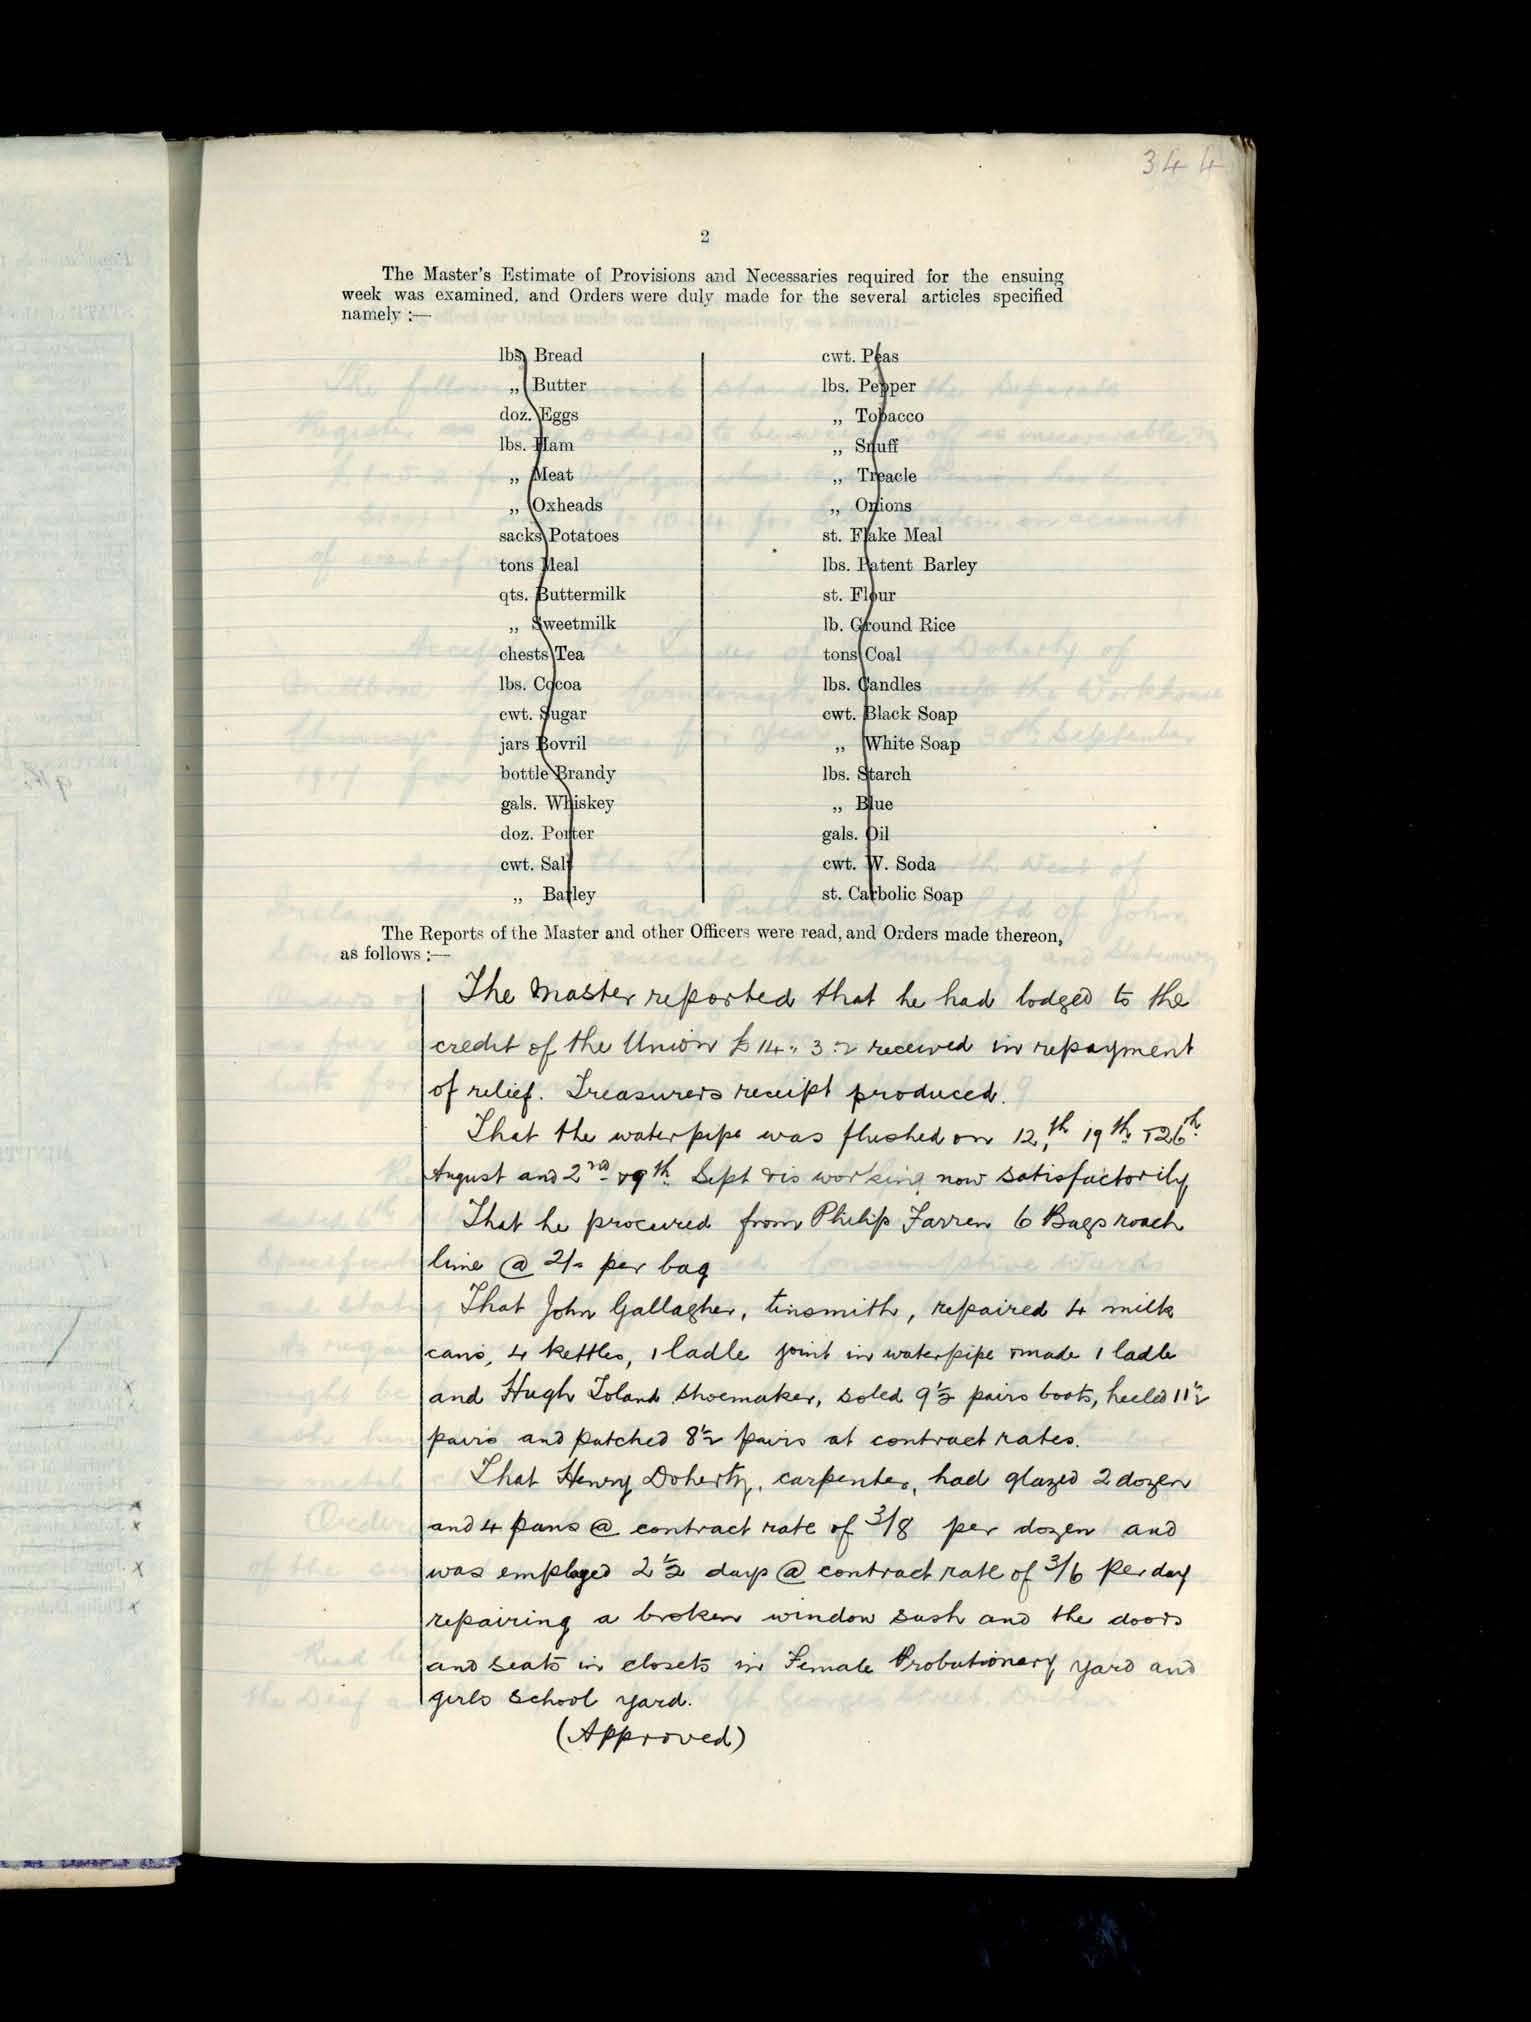 344
2
The Master's Estimate of Provisions and Necessaries required for the ensuing
week was examined, and Orders were duly made for the several articles specified
namely :—
lbs. Bread
„ Butter
doz. Eggs
lbs. Ham
„ Meat
„ Oxheads
sacks Potatoes
tons Meal
qts. Buttermilk
„ Sweetmilk
chests Tea
lbs. Cocoa
cwt. Sugar
jars Bovril
bottle Brandy
gals. Whiskey
doz. Porter
cwt. Salt
„ Barley
cwt. Peas
lbs. Pepper
„ Tobacco
„ Snuff
„ Treacle
„ Onions
st. Flake Meal
lbs. Patent Barley
st. Flour
lb. Ground Rice
tons Coal
lbs. Candles
cwt. Black Soap
„ White Soap
lbs. Starch
„ Blue
gals. Oil
cwt. W. Soda
st. Carbolic Soap
The Reports of the Master and other Officers were read, and Orders made thereon,
as follows :—
The Master reported that he had lodged to the
credit of the Union £14.. 3.. 2 received in repayment
of relief. Treasurers receipt produced.
That the waterpipe was flushed on 12th, 19th & 26th
August and 2nd & 9th Sept & is working now satisfactorily
That he procured from Philip Farren 6 Bags roach
lime @ 2/- per bag
That John Gallagher, tinsmith, repaired 4 milk
cans, 4 kettles, 1 ladle joint in waterpipe & made 1 ladle
and Hugh Toland shoemaker, soled 9½ pairs boots, heeled 11½
pairs and patched 8½ pairs at contract rates.
That Henry Doherty, carpenter, had glazed 2 dozen
and 4 pans @ contract rate of 3/8 per dozen and
was employed 2½ days @ contract rate of 3/6 per day
repairing a broken window sash and the doors
and seats in closets in Female Probationary yard and
girls school yard.
(Approved)